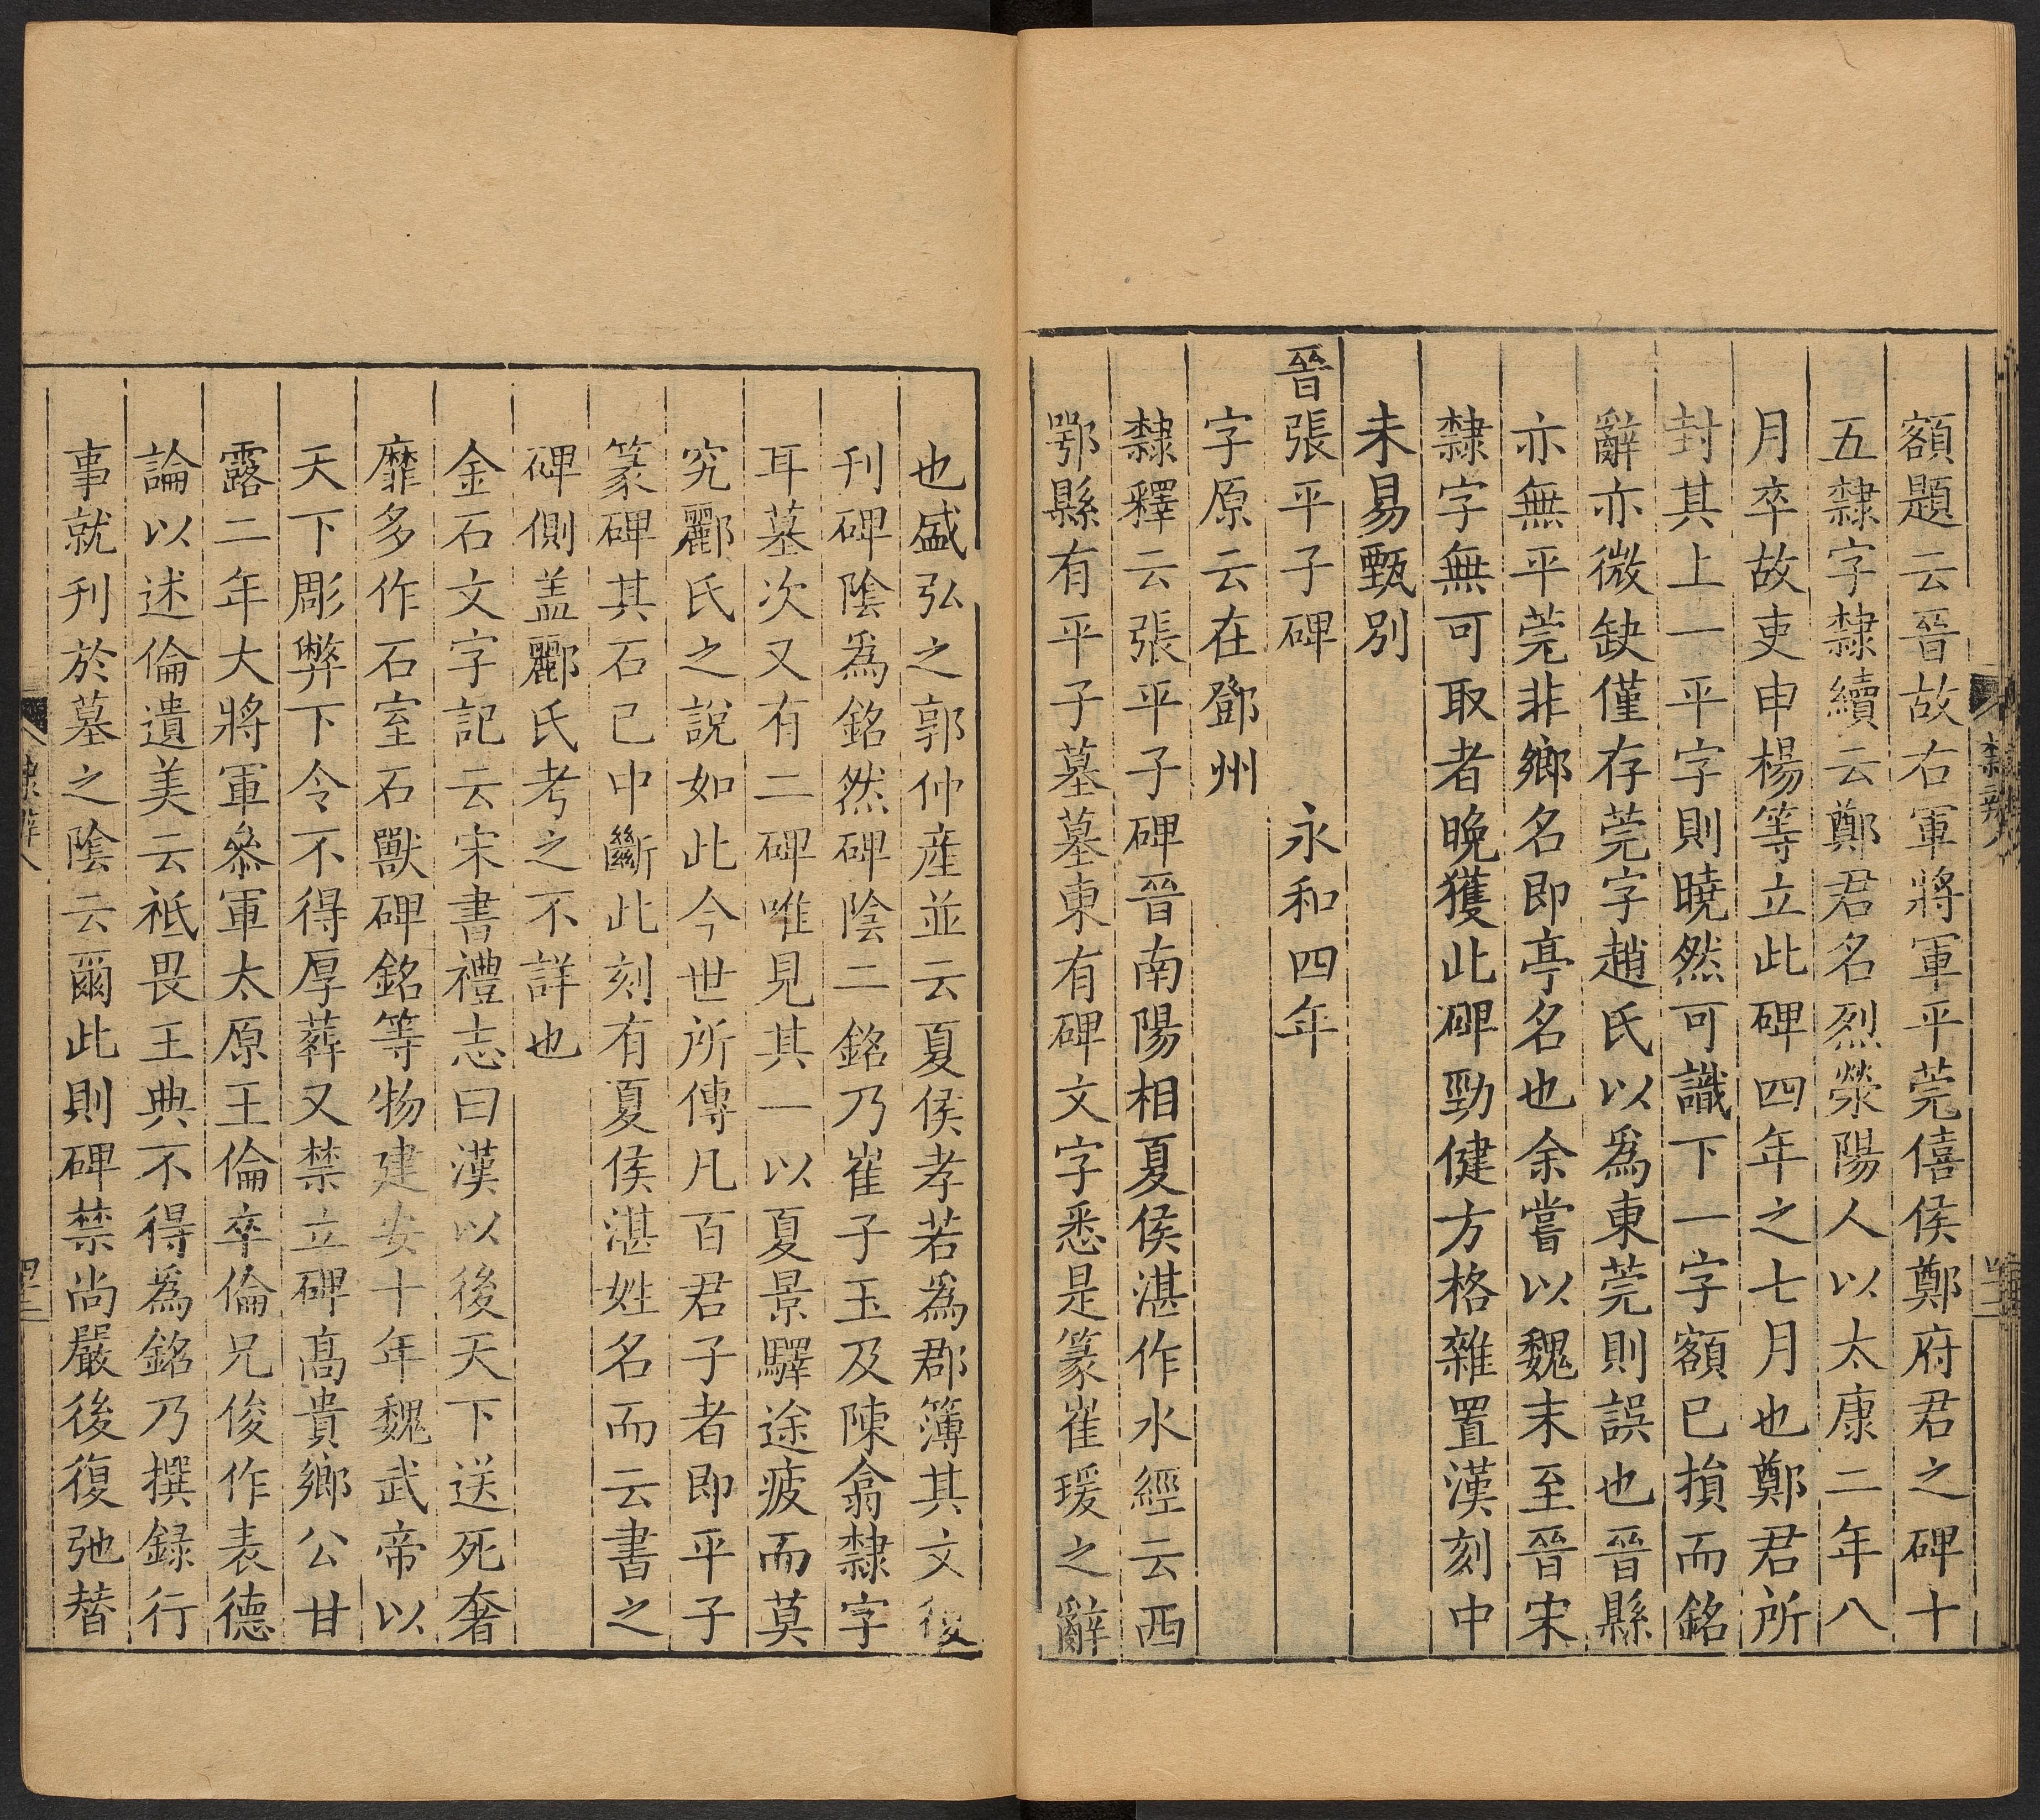 額題云晉故右軍將軍平莞僖侯鄭府君之碑十
五隷字隷續云鄭君名烈滎陽人以太康二年八
月卒故吏申楊等立此碑四年之七月也鄭君所
封其上一平字則曉然可識下一字額已損而銘
辭亦微缺僅存莞字趙氏以爲東莞則誤也晉縣
亦無平莞非鄉名即亭名也余嘗以魏末至晉宋
隷字無可取者晚獲此碑勁健方格雜置漢刻中
未易甄別
晉張平子碑 永和四年
字原云在鄧州
隷釋云張平子碑晉南陽相夏侯湛作水經云西
鄂縣有平子墓墓東有碑文字悉是篆崔瑗之辭
也盛弘之郭仲産並云夏侯孝若爲郡簿其文復
刊碑陰爲銘然碑陰二銘乃崔子玉及陳翕隷字
耳墓次又有二碑唯見其一以夏景驛途疲而莫
究酈氏之說如此今世所傳凡百君子者即平子
篆碑其石已中斷此刻有夏侯湛姓名而云書之
碑側盖酈氏考之不詳也
金石文字記云宋書禮志曰漢以後天下送死奢
靡多作石室石獸碑銘等物建安十年魏武帝以
天下彫弊下令不得厚葬又禁立碑髙貴鄉公甘
露二年大將軍叅軍太原王倫卒倫兄俊作表德
論以述倫遺美云祗畏王典不得爲銘乃撰録行
事就刊於墓之陰云爾此則碑禁尚嚴後復弛替